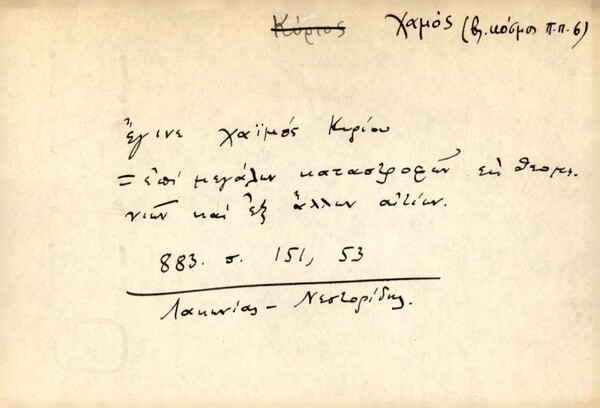 Κύριος χαμός (βλ. κόσμος π.π. 6)
ἔγινε χαϊμός Κυρίου
= ἐπί μεγάλων καταστροφῶν ἐκ θεομη-
νιῶν καί ἐξ ἄλλων αἰτίων.
883. σ. 151, 53
Λακωνίας – Νεστορίδης.